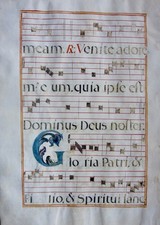 meam. R. Venite adore
m⁹ eum, quia ipse est
Dominus Deus noster,
Gloria Patri, &
Filio, & Spiritui sanc